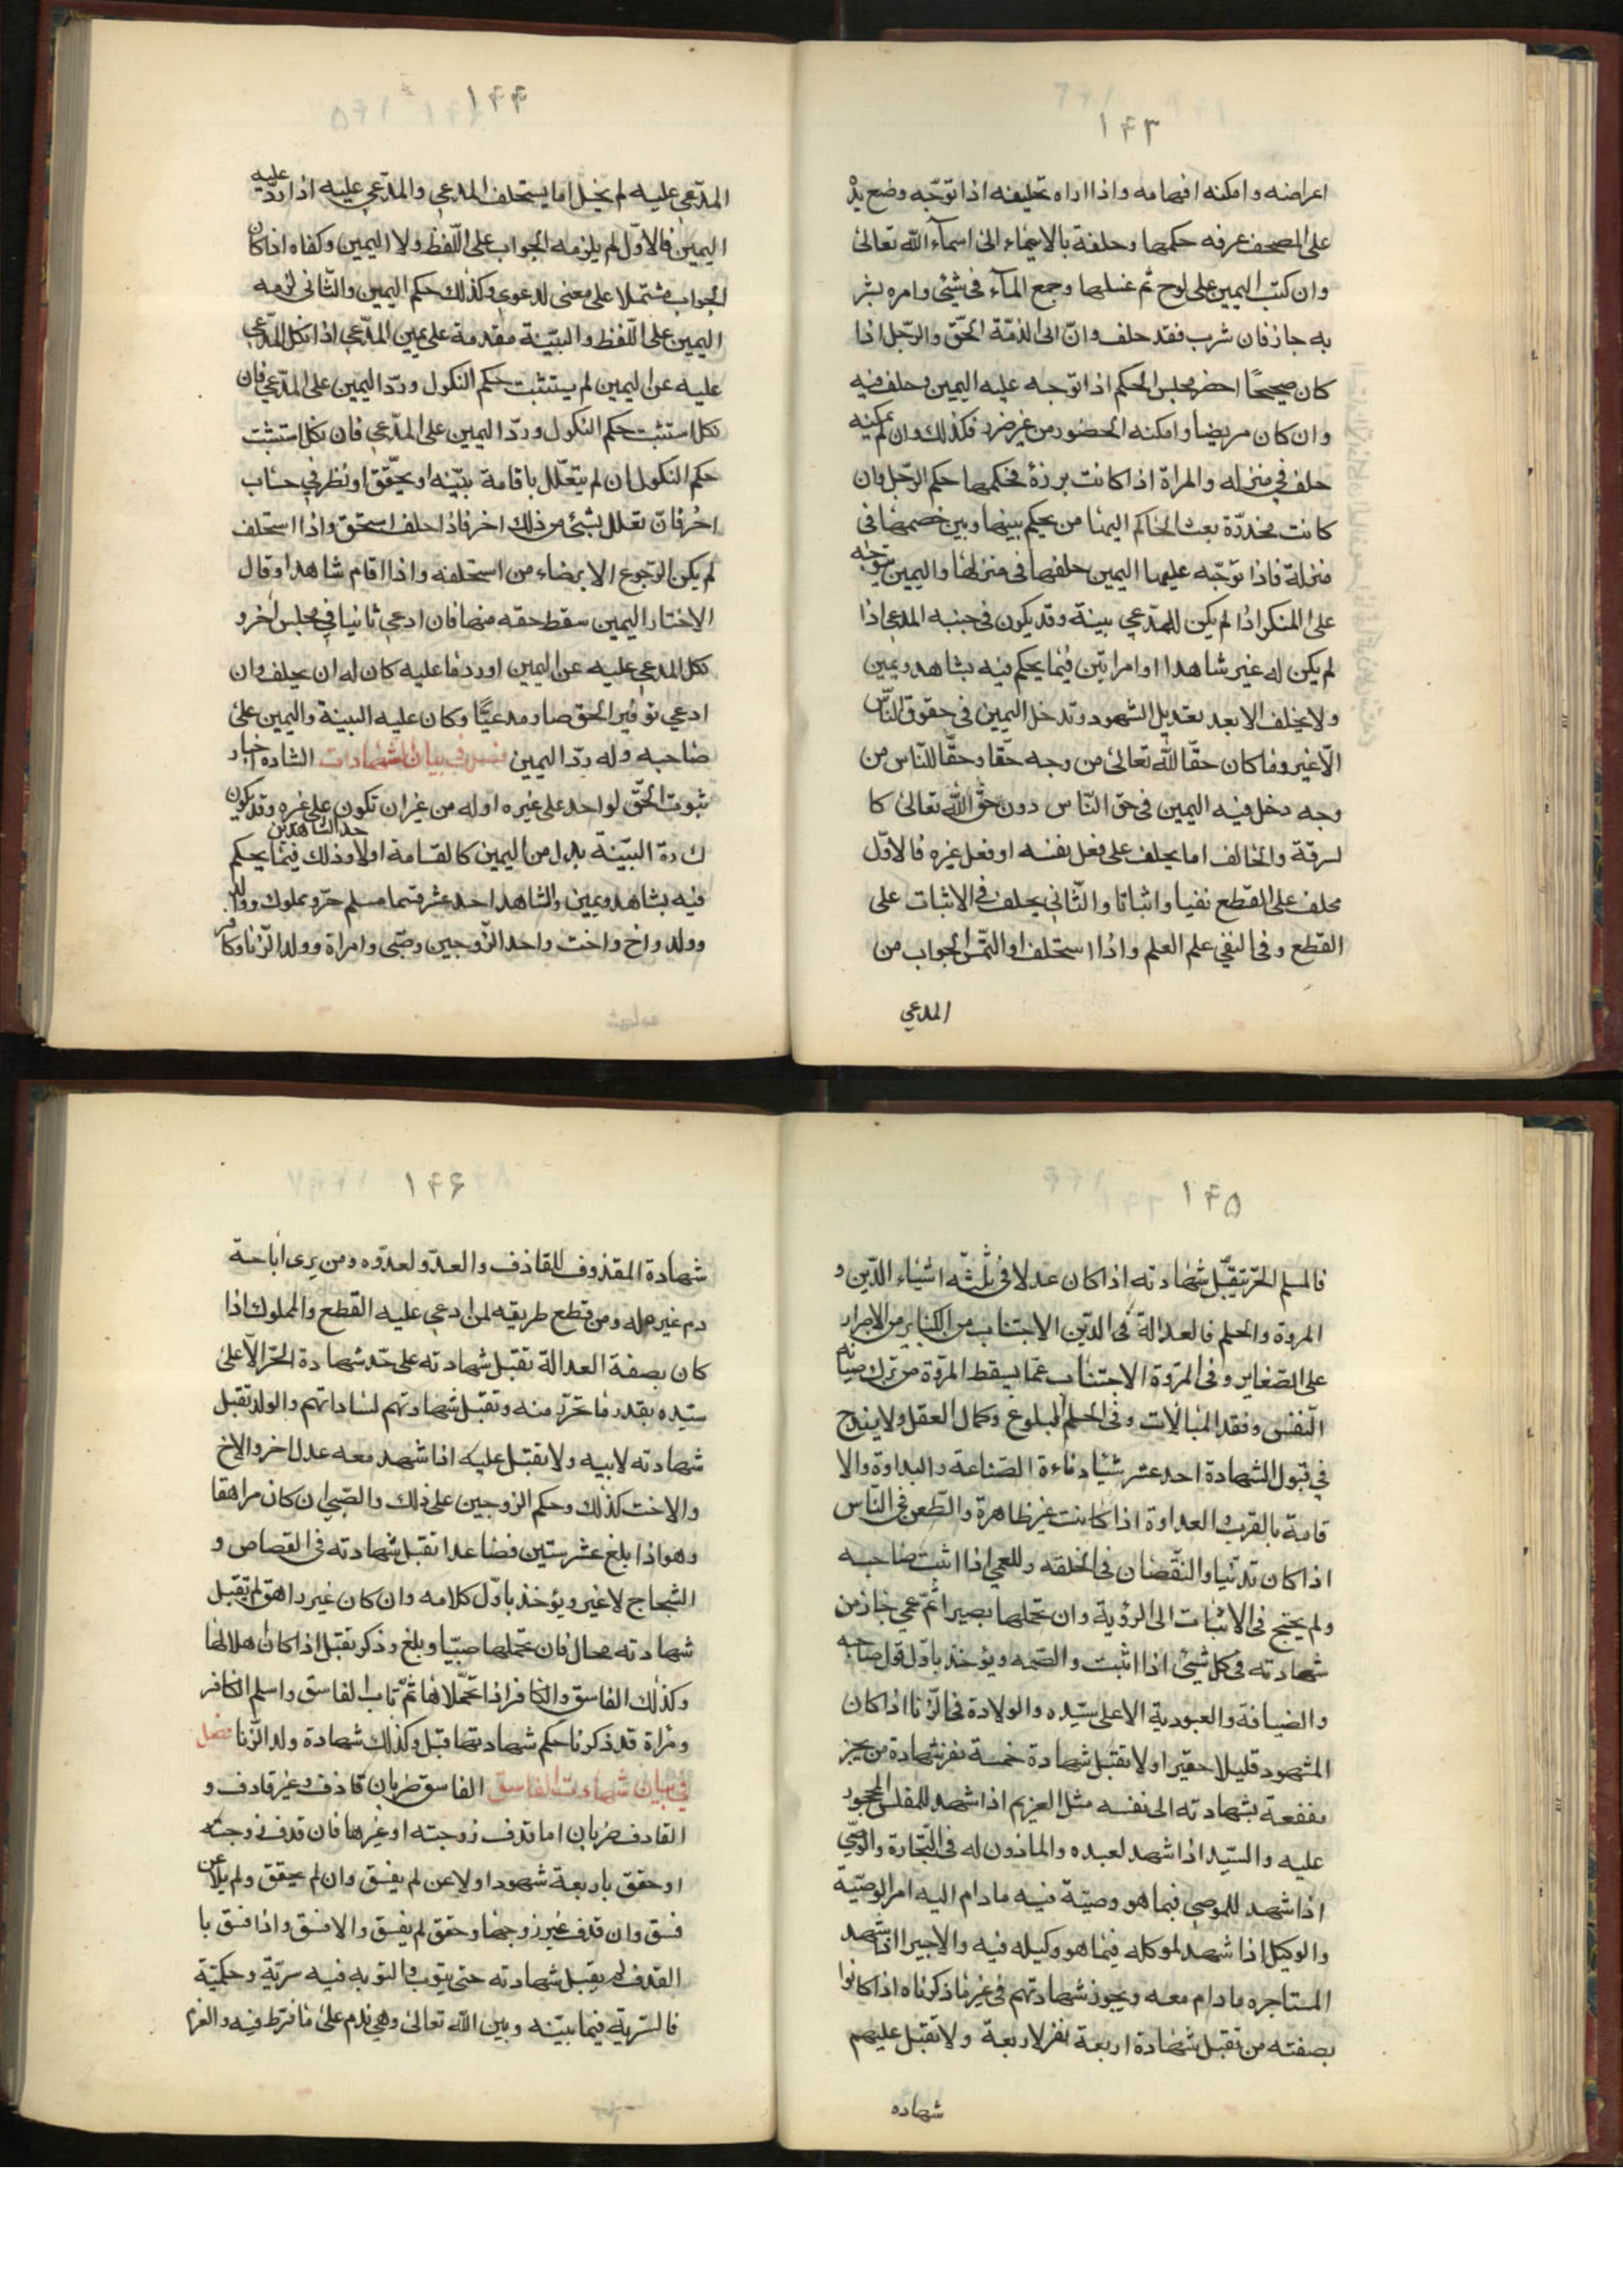 ١۴٣
اعراضه وامكنه افهامه واذا اراه تحليفه اذا توّجه وضع يدْ
على المصحف عرفه حكمها وحلفة بالايماء الى اسمآء الله تعالى
وان كتب اليمين على لوح ثم غسلها وجمع المآء فى شيئى وامره بشر
به جاز فان شرب فقد حلف وانّ ابى الذمّة الحّق والرّجل اذا
كان صحيحًا احضر مجلس الحكم اذا توّجه عليه اليمين وحلف فيه
وان كان مريضا وامكنه الحضور من غير ضرر فكذلك وان لم يمكنه
حلف في منزله والمراة اذا كانت برزة فحكمها حكم الرّجل وان
كانت مخدّرة بعث الحاكم اليها من يحكم بينها وبين خصمها فى
منزلة فاذا توّجه عليها اليمين حلفها فى منزلها واليمين يتوّجه
على المنكر اذا لم يكن للمدّعي بينة وقد يكون فى جنبه المدعى اذا
لم يكن له غير شاهدا او امراتّين فيما يحكم فيه بشاهد ويمين
ولا يحلف الا بعد تعديل الشهود وتدخل اليمين فى حقوق النّاس
الاّ غير وما كان حقّا لله تعالى من وجه حقّا وحقّا للنّاس من
وجه دخل فيه اليمين فى حق النّاس دون حقّ الله تعالى كا
لسرقة والحالف اما يحلف على فعل نفسه او فعل غيره فالاوّل
محلف على القطع نفيا واثباتا والثّاني يحلف في الاثبات على
القطع وفى النفي علم العلم واذا استحلف او التمس الجواب من
المدعي
١۴۴
المدّعى عليه لم يخل اما يستحلف المدعي والمدّعي عليه اذا ردّ عليه
اليمين فالاوّل لم يلزمه الجواب على اللّفظ ولا اليمين وكفاه اذا كان
الجواب مشتملا على معنى لدعوى وكذلك حكم اليمين والثّانى لزمه
اليمين على اللّفظ والبيّنة مقدمة على يمين المدّعي اذا نكل المدّعي
عليه عن اليمين لم يستثبت حكم النكول وردّ اليمين على المدّعي فان
نكل استثبت حكم النكول وردّ اليمين على المدّعي فان نكل استثبت
حكم النكول ان لم يتعّلل باقامة بيّنه او يحّقق او نظر في حساب
اخر فانّ تعلل بشئ من ذلك اخر فاذا حلف استحق واذا استحلف
لم يكن الرّجوع الا برضاء من استحلفه واذا اقام شاهدا وقال
الاختار اليمين سقط حقه منها فان ادعي ثانيا في مجلس اخر و
نكل المدعي عليه عن اليمين اوردها عليه كان له ان يحلف وان
ادعي توفير الحق صار مدعيًّا وكان عليه البينة واليمين على
صاحبه وله ردّ اليمين فصل في بيان الشهادات الشاده اخبار
ثبوت الحقّ لواحد على غيره اوله من غير ان تكون على غيره وقد يكون
احد الشاهدين
ك دة البيّنة بدل من اليمين كالقسامة اولا وذلك فيما يحكم
فيه بشاهد ويمين والشاهد احد عشر قسما مسلم حرّ ومملوك ووالد
وولد واخ واخت واحد الزّوجين وصّبى وامراة وولد الزّنا وكافر
١۴۵
فالمسلم الحرّ تقبّل شهادته اذا كان عدلا فى ثلثّه اشياء الدّين و
المروّة والحلم فالعدالة فى الدّين الاجتناب من الكبائر من الاصرار
على الصّغاير وفى المرّوة الاجتناب عمّا يسقط المرّوة من ترك صيانه
النّفس وفقد المبالات وفى الحلم البلوغ وكمال العقل ولا يقدح
في قبول الشهادة احد عشر شيئا دناءة الصّناعة والبداوة والا
قامة بالقرب العداوة اذا كانت غير ظاهرة والطّعن فى النّاس
اذا كان تدنّيا والنقّصان فى الخلقه وللعمي اذا اثبت صاحبه
ولم يحتج فى الاثبات الى الرؤية وان تحملها بصيرا ثمّ عمي جاز من
شهادته فى كل شيئ اذا اثبت والصّمه ويؤخذ باوّل قول صاحبه
والضيافة والعبودية الا على سيّده والولادة فى الزّنا اذا كان
المشهود قليلا حقيرا ولا تقبل شهادة خمسة نفر شهادة من يجز
بنفعة بشهادته الى نفسه مثل العزيم اذا شهد للمفلس المحجور
عليه والسيّد اذا شهد لعبده والماذون له فى التّجارة والوصّي
اذا شهد للموصى فيما هو وصيّة فيه مادام اليه امر الوصيّة
والوكيل اذا شهد لموكله فيما هو وكيله فيه والاجير اذا شهد
المستاجره مادام معه ويجوز شهادتهم فى غير ما ذكرناه اذا كانوا
بصفته من تقبل شهادة اربعة نفر لاربعة ولا تقبل عليهم
شهاده
١۴۶
شهادة المقذوف للقاذف والعدّو لعدّوه ومن يرى اباحة
دم غير حله ومن قطع طريقه لمن ادعي عليه القطع والمملوك اذا
كان بصفة العدالة تقبل شهادته على حّد شهادة الحّر الاّ على
سيّده بقدر ما تحرّر منه وتقبل شهادتهم لساداتهم والولد تقبل
شهادته لابيه ولا تقبل عليه اذا شهد معه عدل اخر والاخ
والاخت كذلك وحكم الزوجين على ذلك والصّبي ان كان مراهقا
وهو اذا بلغ عشر سنين فصاعدا تقبل شهادته فى القصاص و
الشجاج لا غير ويؤخذ باوّل كلامه وان كان غير راهق لم تقبل
شهادته محال فان تحّملها صبيّا وبلغ وذكر تقبل اذا كان اهلا لها
وكذلك الفاسق والكافر اذا تحّملا ها ثمّ تاب الفاسق واسلم الكافر
ومراة قد ذكرنا حكم شهادتها قبل وكذلك شهادة ولد الزّنا فصل
في بيان شهادت الفاسق الفاسق ضربان قاذف وغير قاذف و
القاذف ضربان اما قذف زوجته او غيرها فان قذف زوجته
او حقق باربعة شهود او لاعن لم يفسق وان لم يحقق ولم يلاعن
فسق وان قذف غير زوجها وحقق لم يفسق والا فسق واذا فسق با
القذف لم يقبل شهادته حتى يتوب والتوبه فيه سريّة وحكميّة
فالسّرية فيما بينّه وبين الله تعالى وهي ندم على ما فرط فيه والعزم